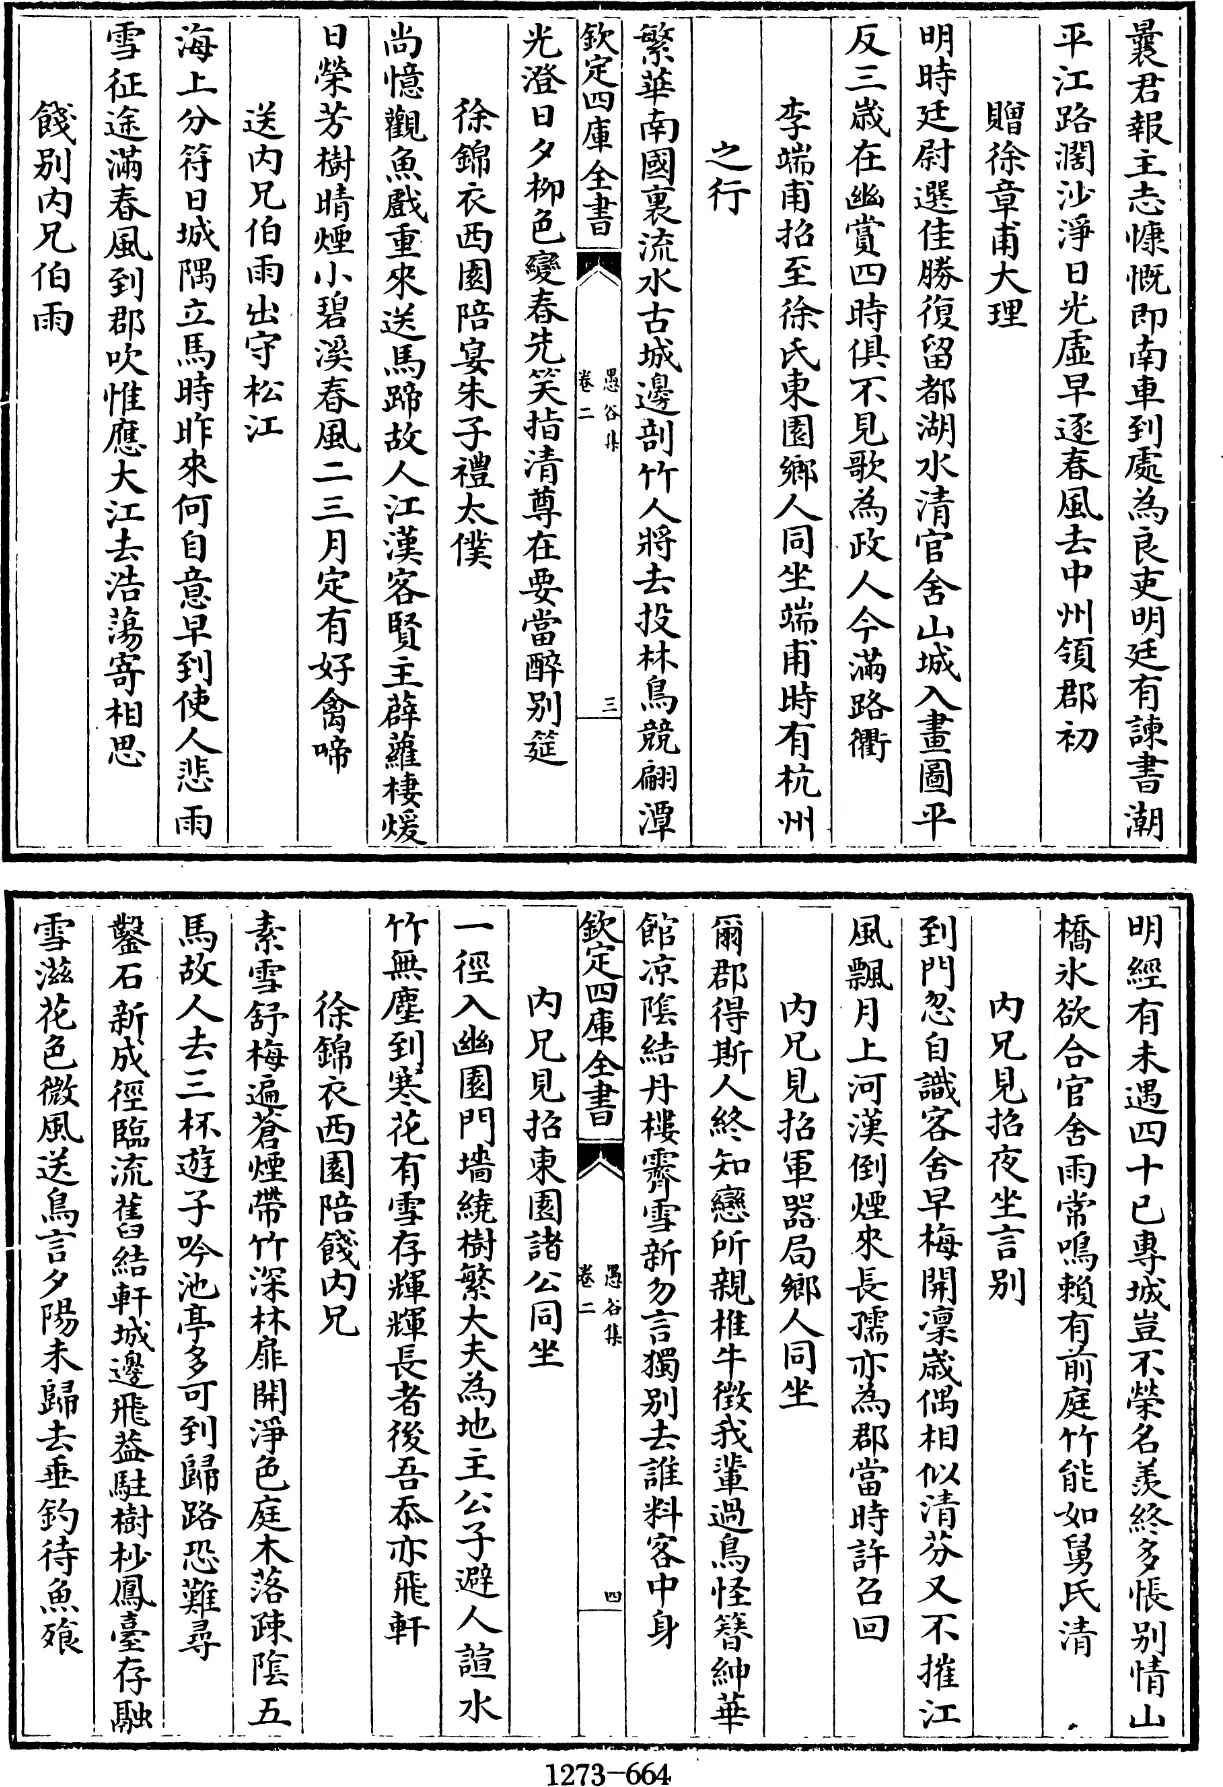 曩君報主志慷慨即南車到處為良吏明廷有諫書潮
平江路濶沙淨日光虛早逐春風去中州領郡初
贈徐章甫大理
明時廷尉選佳勝復留都湖水清官舍山城入畫圖平
反三歲在幽賞四時俱不見歌為政人今滿路衢
李端甫招至徐氏東園鄉人同坐端甫時有杭州
之行
繁華南國裏流水古城邊剖竹人將去投林鳥競翩潭
欽定四庫全書
愚谷集
卷二
三
光澄日夕柳色變春先笑指清尊在要當醉别筵
徐錦衣西園陪宴朱子禮太僕
尚憶觀魚戲重來送馬蹄故人江漢客賢主薜蘿棲煖
日榮芳樹晴煙小碧溪春風二三月定有好禽啼
送内兄伯雨出守松江
海上分符日城隅立馬時昨來何自意早到使人悲雨
雪征途滿春風到郡吹惟應大江去浩蕩寄相思
餞别内兄伯雨
明經有未遇四十已專城豈不榮名羨終多悵别情山
橋氷欲合官舍雨常鳴賴有前庭竹能如舅氏清
内兄見招夜坐言别
到門忽自識客舍早梅開凜歲偶相似清芬又不摧江
風飄月上河漢倒煙來長孺亦為郡當時許召回
内兄見招軍器局鄉人同坐
爾郡得斯人終知戀所親椎牛徵我輩過鳥怪簪紳華
館凉隂結丹樓霽雪新勿言獨别去誰料客中身
欽定四庫全書
愚谷集
卷二
四
内兄見招東園諸公同坐
一徑入幽園門墻繞樹繁大夫為地主公子避人諠水
竹無塵到寒花有雪存輝輝長者後吾忝亦飛軒
徐錦衣西園陪餞内兄
素雪舒梅遍蒼煙帶竹深林扉開淨色庭木落疎隂五
馬故人去三杯遊子吟池亭多可到歸路恐難尋
鑿石新成徑臨流舊結軒城邊飛蓋駐樹杪鳳臺存融
雪滋花色微風送鳥言夕陽未歸去垂釣待魚飱
1273-664